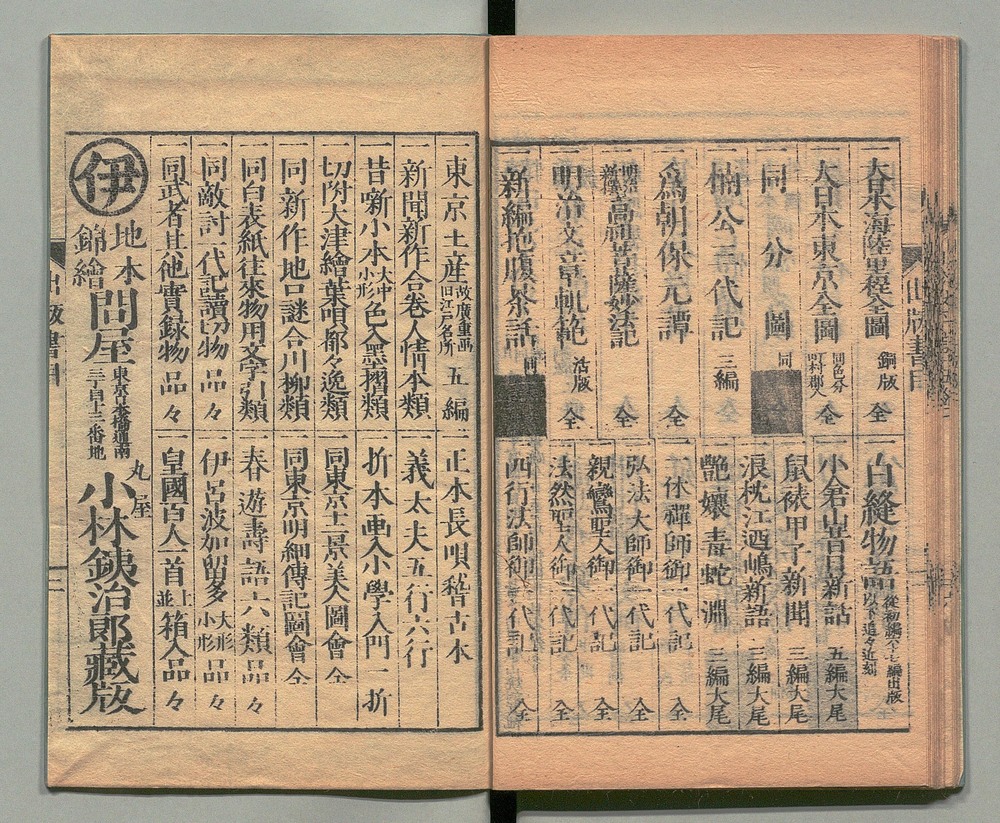 出版書目
一大日本海陸里程全圖 銅版 全
一大日本東京全圖 同色分 町村郡入 全
一同 分圖 同
一楠公三代記 三編 全
一爲朝保元譚 全
一高祖菩薩妙法記 全
一明治文章軌範 活版 全
一新編抱腹茶話 同
一白縫物語 從初編 編出版 以下追々近刻
一小倉山昔日新話 五編大尾
一鼠𧘕甲子新聞 三編大尾
一浪枕江迺嶋新語 三編大尾
一艶孃毒蛇淵 三編大尾
一一休禪師御一代記 全
一弘法大師御一代記 全
一親鸞聖人御一代記 全
一法然聖人御一代記 全
一西行法師御一代記 全
東京土産 故廣重画 旧江戸名所 五編
一新聞新作合卷人情本類
一昔噺小本 大中小形 色入墨摺類
一切附大津繪葉唄都々逸類
一同新作地口謎合川柳類
一同白表紙往來物用文字引類
一同敵討一代記讀切物 品々
一同武者其他實録物 品々
一正本長唄稽古本
一義太夫五行六行
一折本画入小學入門 一折
一同東京十二景美人圖會 全
一同東京明細傳記圖會 全
一春遊壽語六類 品々
一伊呂波加留多 大形小形 品々
一皇國百人一首 上並 箱入品々
伊
地本錦繪問屋 東京日本橋通南三丁目十三番地
丸屋 小林鉄治郎藏版
出版書目
二